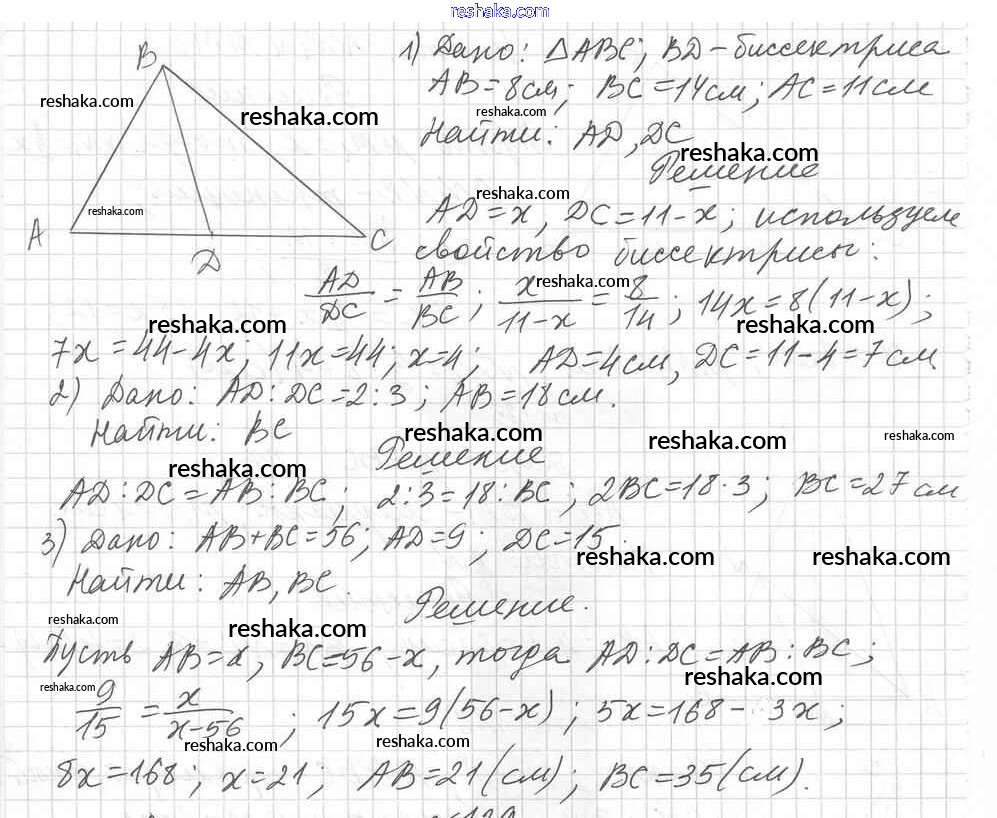 reshaka.com
1) Дано: △ABC; BD – биссектриса
B
reshaka.com
AB = 8 см; BC = 14 см; AC = 11 см
reshaka.com
reshaka.com
Найти: AD, DC
reshaka.com
Решение
reshaka.com
reshaka.com
AD = x, DC = 11 - x; используем
A
C
D
свойство биссектрисы:
reshaka.com
AD/DC = AB/BC; x/(11-x) = 8/14; 14x = 8(11-x);
reshaka.com
reshaka.com
7x = 44 - 4x; 11x = 44; x = 4; AD = 4 см, DC = 11 - 4 = 7 см
2) Дано: AD : DC = 2 : 3; AB = 18 см.
Найти: BC
reshaka.com
reshaka.com
reshaka.com
Решение
reshaka.com
AD : DC = AB : BC; 2 : 3 = 18 : BC; 2BC = 18 · 3; BC = 27 см
3) Дано: AB + BC = 56; AD = 9; DC = 15.
reshaka.com
reshaka.com
Найти: AB, BC.
Решение.
reshaka.com
reshaka.com
Пусть AB = x, BC = 56 - x, тогда AD : DC = AB : BC;
reshaka.com
reshaka.com
9/15 = x/(x-56); 15x = 9(56-x); 5x = 168 - 3x;
reshaka.com
reshaka.com
8x = 168; x = 21; AB = 21 (см); BC = 35 (см).